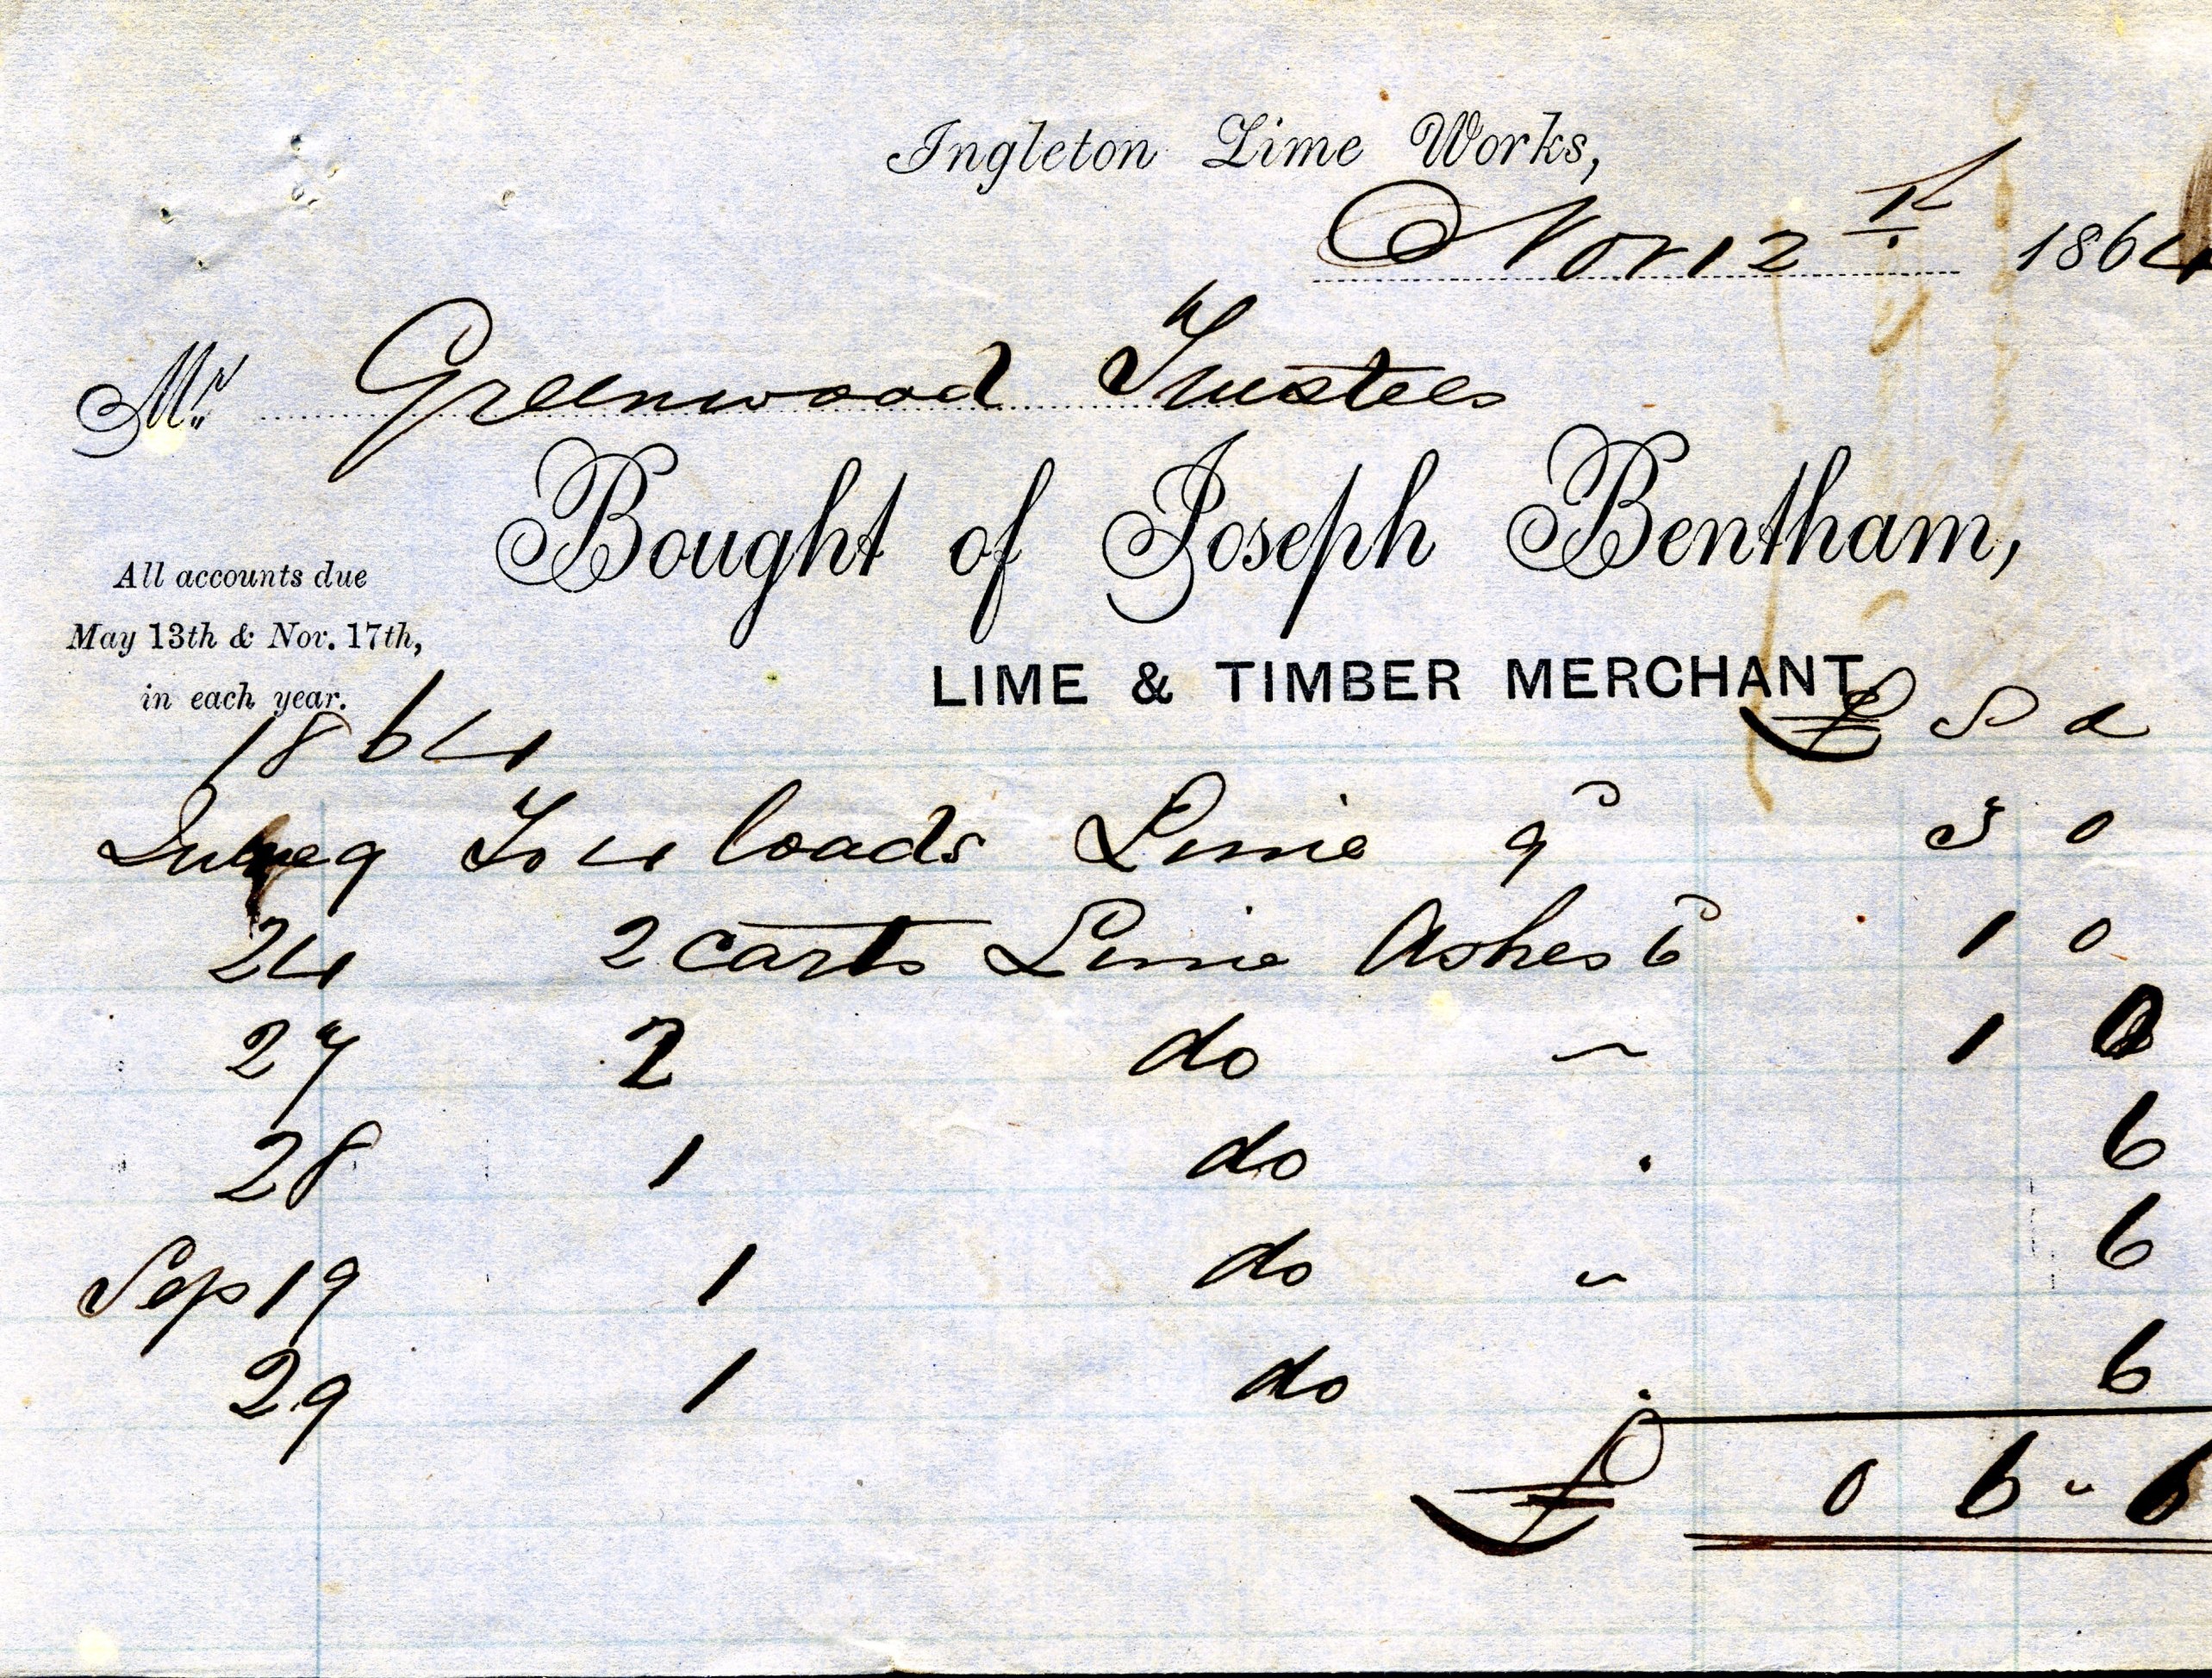 Ingleton Lime Works,
Nov 12th 1864
Mr. Greenwood Trustees
Bought of Joseph Bentham,
All accounts due
May 13th & Nov. 17th,
in each year.
LIME & TIMBER MERCHANT
1864 £ S d
June 9 To 4 loads Lime 9d 3 0
24 2 carts Lime Ashes 6d 1 0
27 2 do ~ 1 0
28 1 do . 6
Sep 19 1 do ~ 6
29 1 do . 6
£ 0 6 - 6